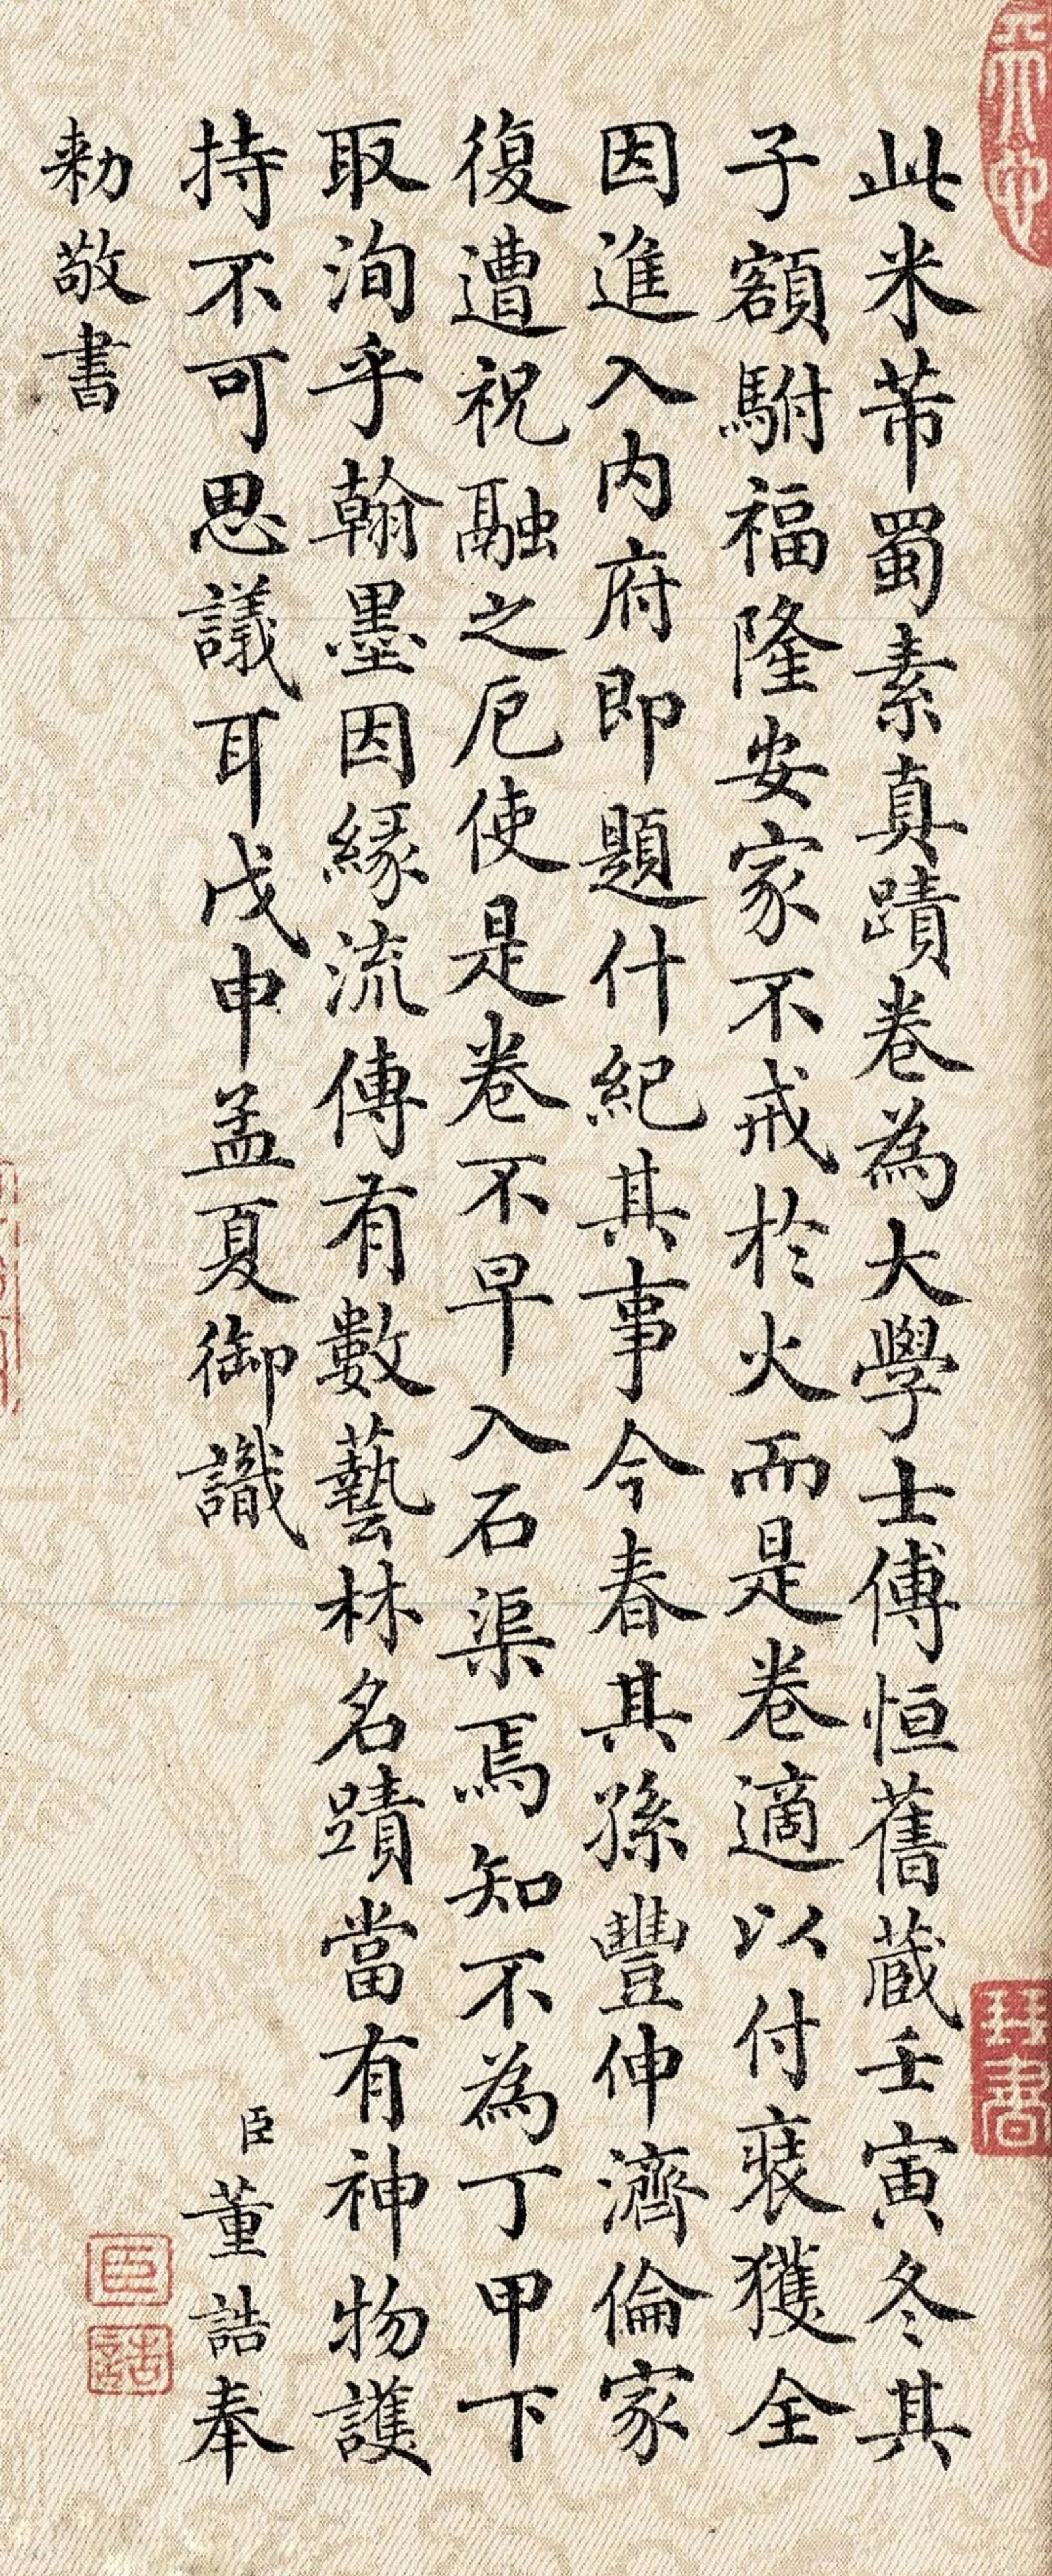 此米芾蜀素真蹟卷為大學士傅恒舊蔵壬寅冬其
子額駙福隆安家不戒於火而是卷適以付裝獲全
因進入內府即題什紀其事今春其孫豐伸濟倫家
復遭祝融之厄使是卷不早入石渠焉知不為丁甲下
取洵乎翰墨因緣流傳有數藝林名蹟當有神物護
持不可思議耳戊申孟夏御識
臣董誥奉
勅敬書
琴書
臣
誥